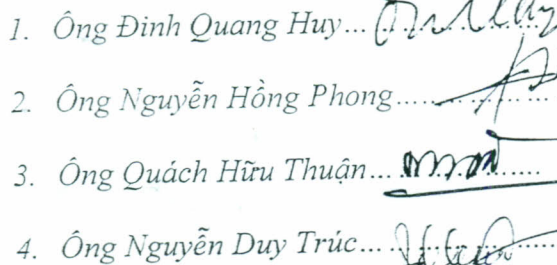 1. Ông Đinh Quang Huy...
2. Ông Nguyễn Hồng Phong...
3. Ông Quách Hữu Thuận...
4. Ông Nguyễn Duy Trúc...